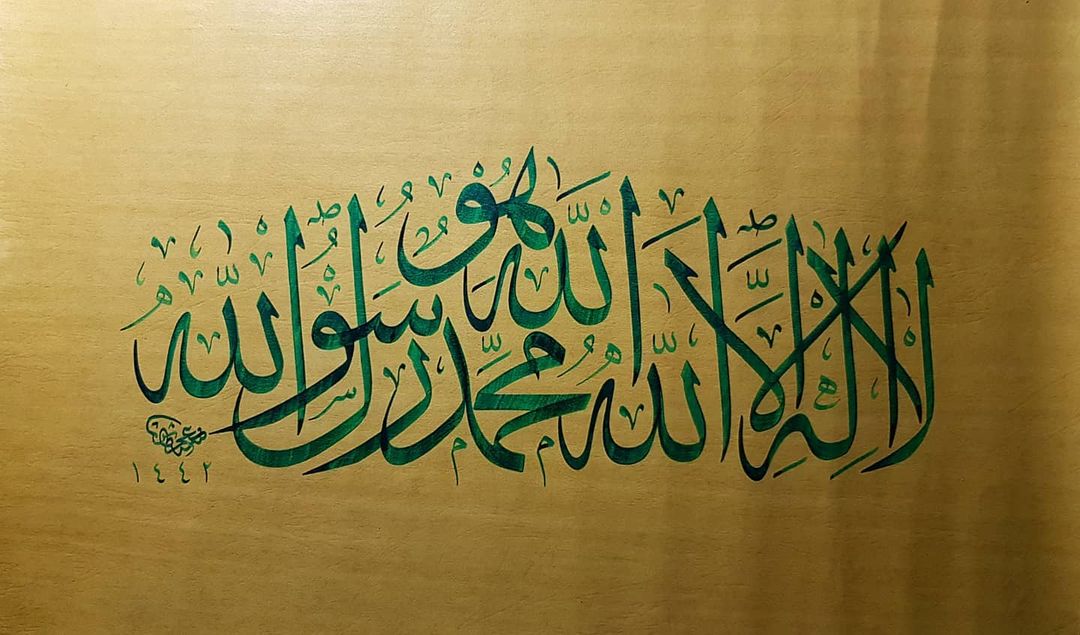 لا اله الا الله الله هو محمد رسول الله
١٤٤٢